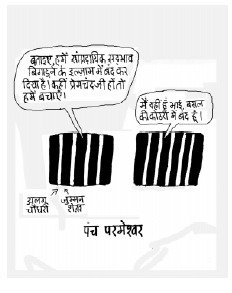 बताइए, हमें सांप्रदायिक सद्भाव
बिगाड़ने के इल्ज़ाम में बंद कर
दिया है। कहीं प्रेमचंदजी हों तो
हमें बचाएं।
मैं यहीं हूं भाई, बगल
की कोठरी में बंद हूं।
अलगू
चौधरी
जुम्मन
शेख
पंच परमेश्वर